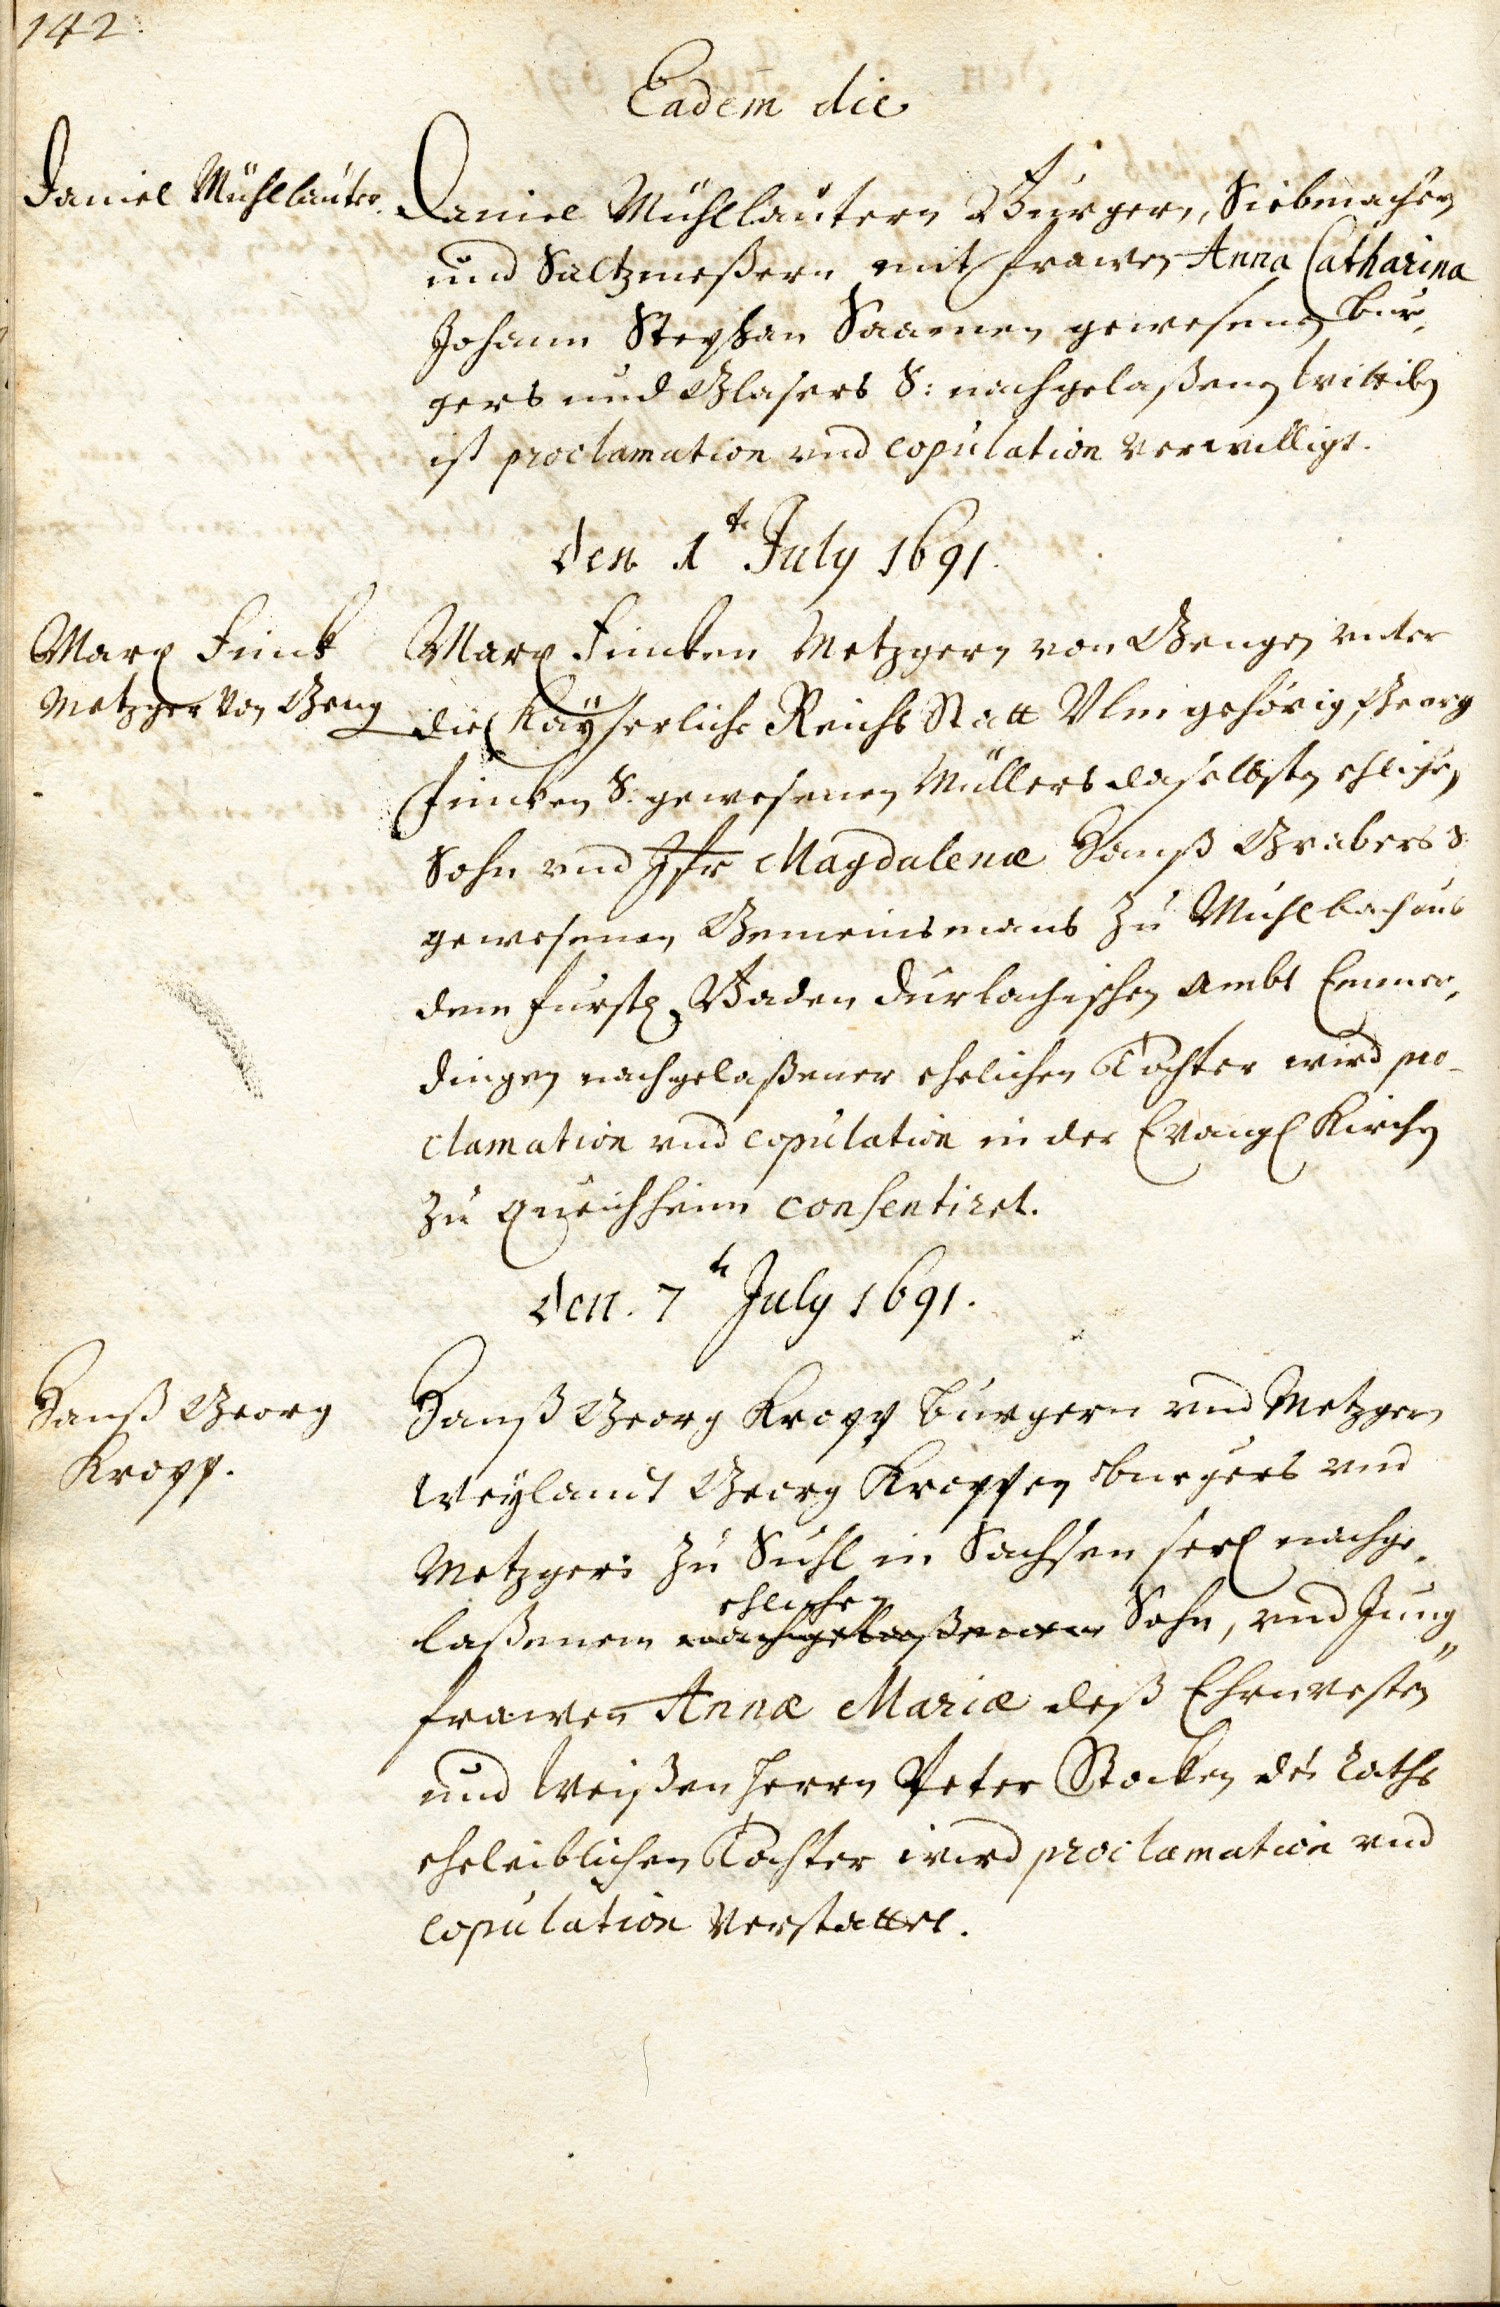 142.
Eadem die
Daniel Mühllauter.
Daniel Mühllautern Burgern, Siebmachern
und Saltzmeßern mit frawen Anna Catharina
Johann Stephan Saamen gewesenen bur,
gers und Glasers S: nachgelaßenen Wittiben
ist proclamation vnd copulation verwilligt.
den 1te July 1691.
Marx Finck
Metzger von Geng
Marx Fincken Metzgern von Gengen vnter
die Käyserliche Reichs Statt Vlm gehörig, Georg
Fincken S: gewesenen Müllers daselbsten ehlichen
Sohn vnd Jfr Magdalenæ Hanß Grabers S:
gewesenen Gemeinsmans zu Mühlbach aus
dem fürstl Baden Durlachischen Ambt Emmer,
dingen nachgelaßener ehelichen Tochter wird pro-
clamation vnd copulation in der Evangl Kirchen
zu Queichheim consentiret.
den. 7te July 1691.
Hanß Georg
Kropp.
Hanß Georg Kropp burgern vnd Metzgern
Weyland Georg Kroppen burgers vnd
Metzgers zu Suhl in Sachsen seel nachge,
ehlichen
laßenem nachgelaßenem Sohn, vnd Jung
frawen Annæ Mariæ deß Ehrnvesten
und Weißen Herrn Peter Stocken des Raths
eheleiblichen Tochter wird proclamation vnd
copulation verstattet.